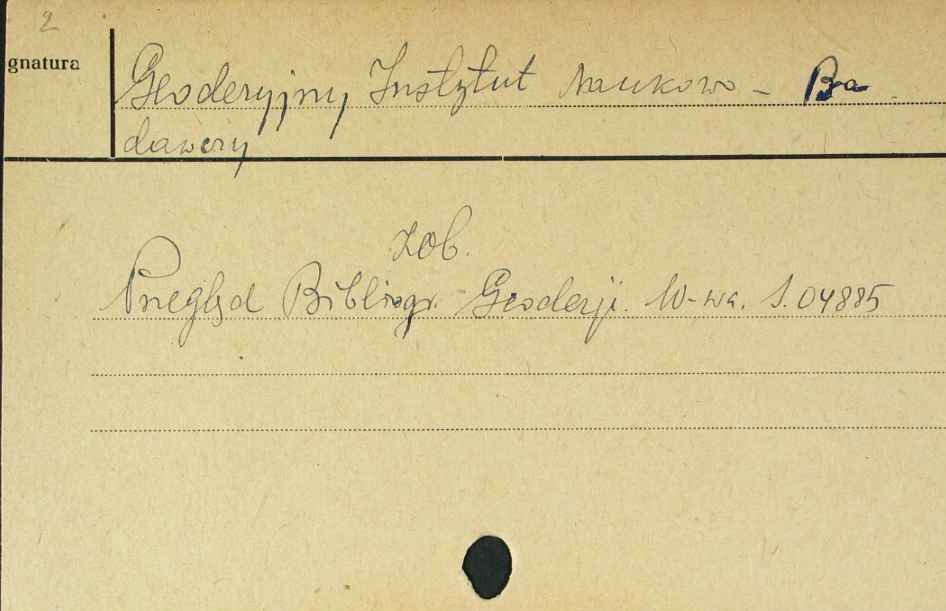 2
gnatura
Geodezyjny Instytut Naukowo - Ba
dawczy
Zob.
Przegląd Bibliogr. Geodezji. W-wa. S.04885